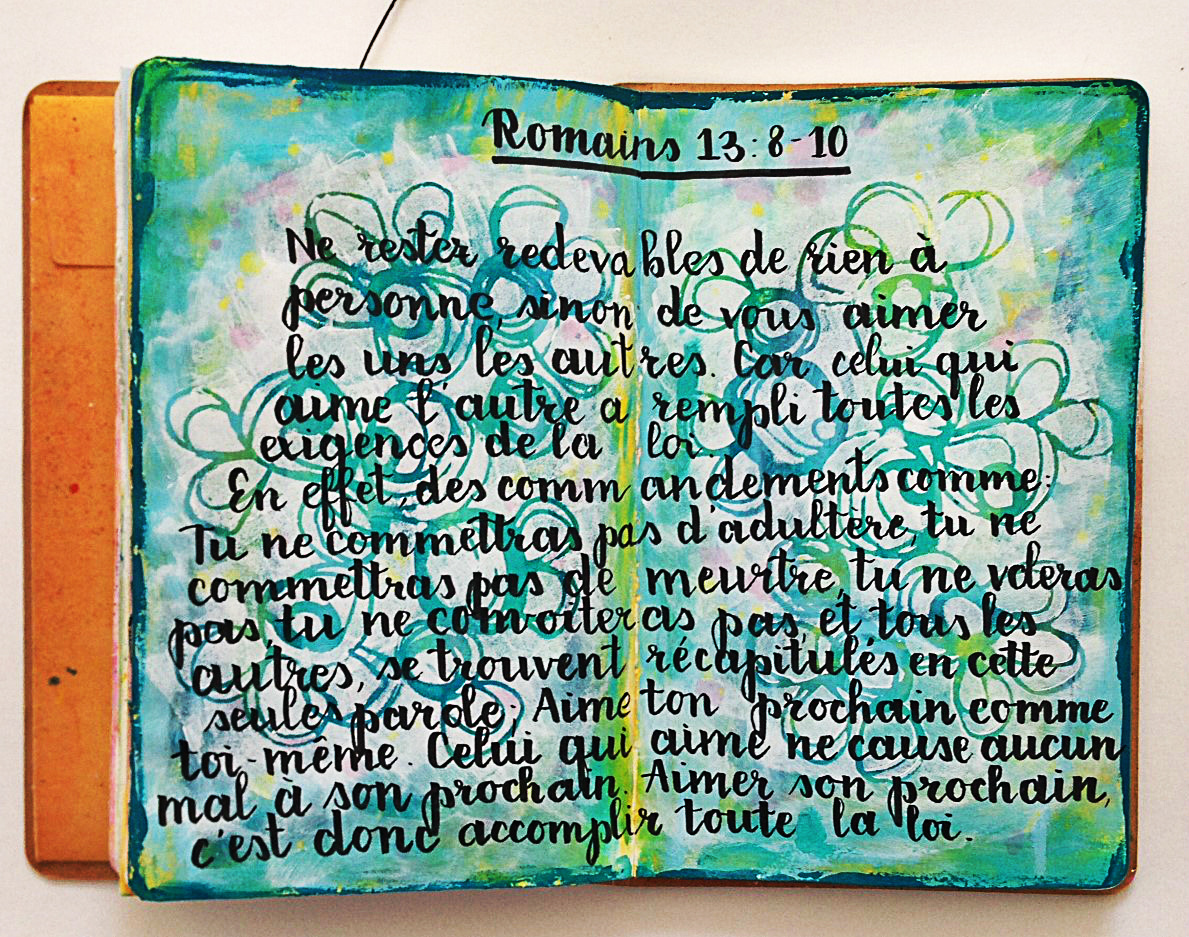 Romains 13:8-10
Ne rester redevables de rien à
personne, sinon de vous aimer
les uns les autres. Car celui qui
aime l'autre a rempli toutes les
exigences de la loi.
En effet, des commandements comme:
Tu ne commettras pas d'adultère, tu ne
commettras pas de meurtre, tu ne voleras
pas, tu ne convoiteras pas, et tous les
autres, se trouvent récapitulés en cette
seule parole, Aime ton prochain comme
toi-même. Celui qui aime ne cause aucun
mal à son prochain. Aimer son prochain,
c'est donc accomplir toute la loi.